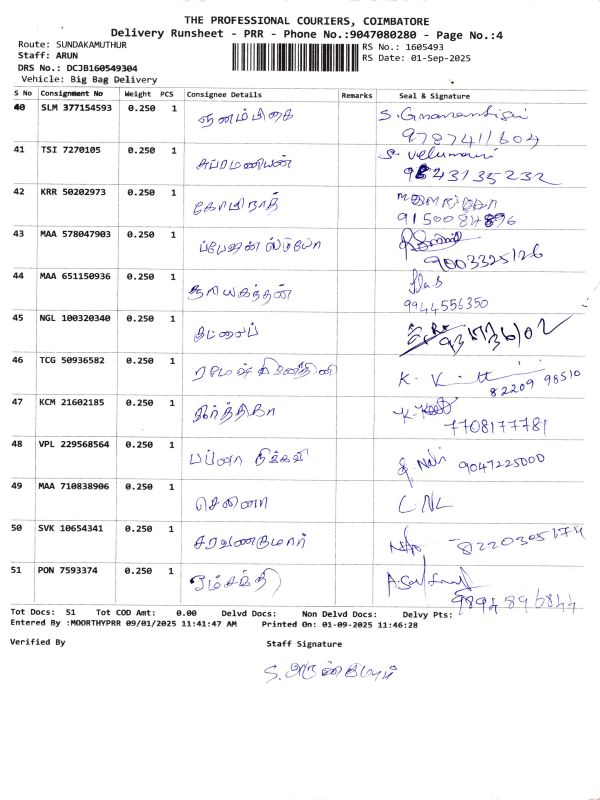 THE PROFESSIONAL COURIERS, COIMBATORE
Delivery Runsheet - PRR - Phone No.:9047080280 - Page No.:4
Route: SUNDAKAMUTHUR
RS No.: 1605493
Staff: ARUN
RS Date: 01-Sep-2025
DRS No.: DCJB160549304
Vehicle: Big Bag Delivery
S No Consignment No Weight PCS Consignee Details Remarks Seal & Signature
40 SLM 377154593 0.250 1 ஞானம்பிகை
9787411604
41 TSI 7270105 0.250 1 சுப்ரமணியன் S. Velumani
9843135232
42 KRR 50202973 0.250 1 கோபிநாத்
9150084896
43 MAA 578047903 0.250 1
9003325126
44 MAA 651150936 0.250 1
9944556350
45 NGL 100320340 0.250 1
46 TCG 50936582 0.250 1 ரமேஷ்
82209 98510
47 KCM 21602185 0.250 1 கீர்த்திகா
7708177781
48 VPL 229568564 0.250 1
9047225000
49 MAA 710838906 0.250 1 செலினா
50 SVK 10654341 0.250 1 சரவணகுமார்
51 PON 7593374 0.250 1 ஓம்சக்தி
9894896844
Tot Docs: 51 Tot COD Amt: 0.00 Delvd Docs: Non Delvd Docs: Delvy Pts:
Entered By :MOORTHYPRR 09/01/2025 11:41:47 AM Printed On: 01-09-2025 11:46:28
Verified By Staff Signature
S. அருண்குமார்